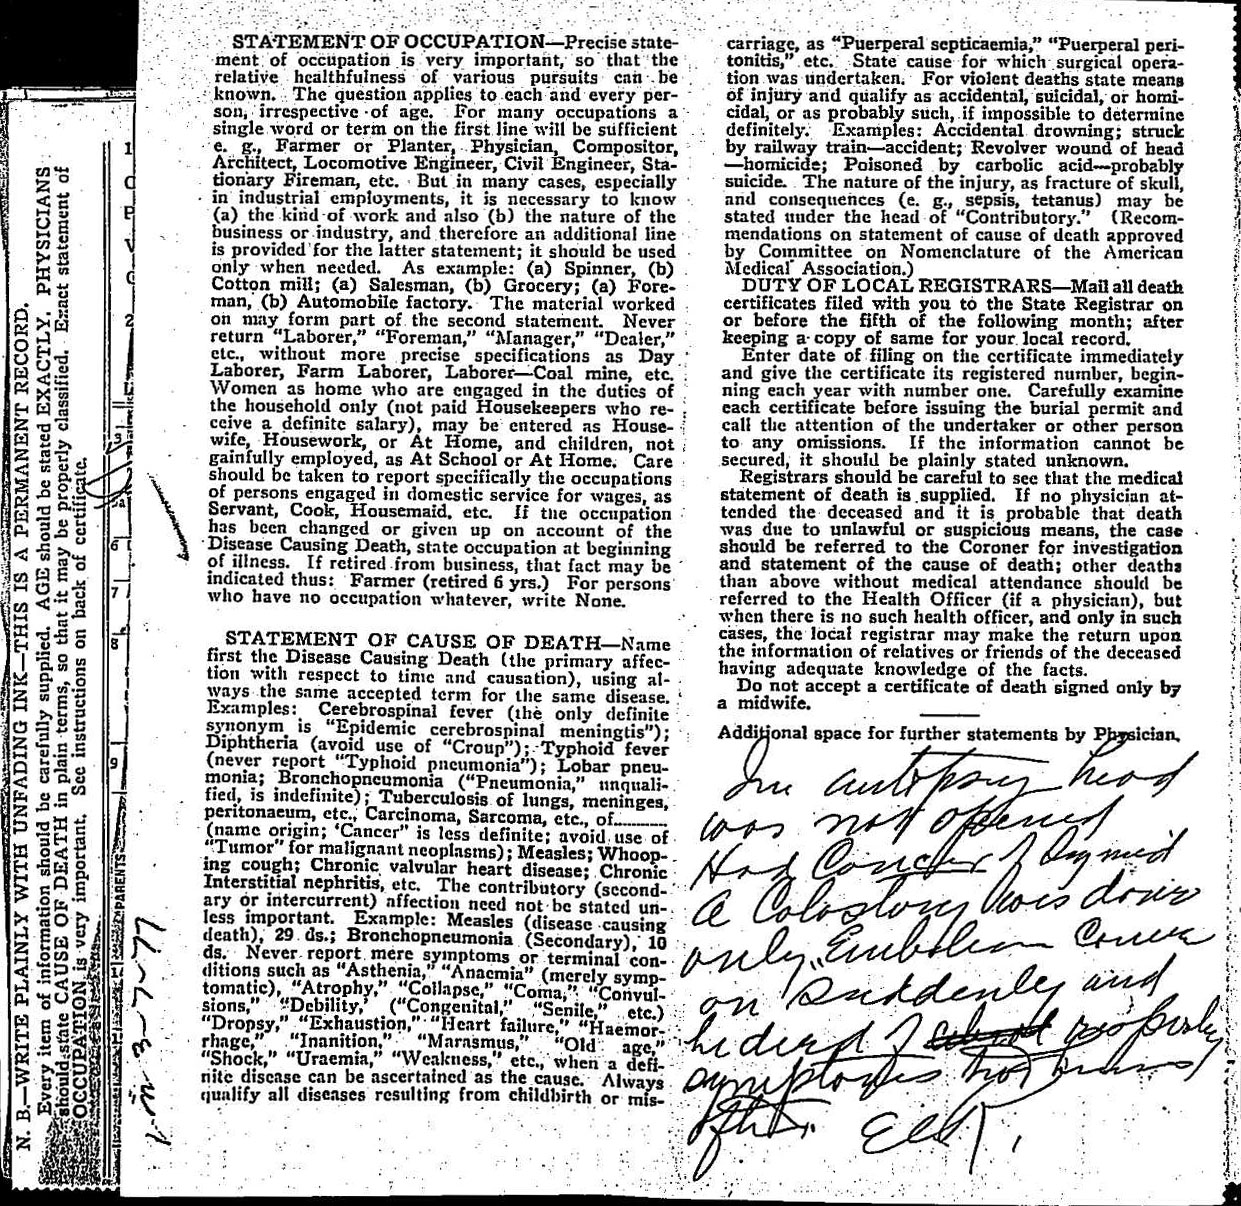 STATEMENT OF OCCUPATION—Precise state-
ment of occupation is very important, so that the
relative healthfulness of various pursuits can be
known. The question applies to each and every per-
son, irrespective of age. For many occupations a
single word or term on the first line will be sufficient
e. g., Farmer or Planter, Physician, Compositor,
Architect, Locomotive Engineer, Civil Engineer, Sta-
tionary Fireman, etc. But in many cases, especially
in industrial employments, it is necessary to know
(a) the kind of work and also (b) the nature of the
business or industry, and therefore an additional line
is provided for the latter statement; it should be used
only when needed. As example: (a) Spinner, (b)
Cotton mill; (a) Salesman, (b) Grocery; (a) Fore-
man, (b) Automobile factory. The material worked
on may form part of the second statement. Never
return "Laborer," "Foreman," "Manager," "Dealer,"
etc., without more precise specifications as Day
Laborer, Farm Laborer, Laborer—Coal mine, etc.
Women as home who are engaged in the duties of
the household only (not paid Housekeepers who re-
ceive a definite salary), may be entered as House-
wife, Housework, or At Home, and children, not
gainfully employed, as At School or At Home. Care
should be taken to report specifically the occupations
of persons engaged in domestic service for wages, as
Servant, Cook, Housemaid, etc. If the occupation
has been changed or given up on account of the
Disease Causing Death, state occupation at beginning
of illness. If retired from business, that fact may be
indicated thus: Farmer (retired 6 yrs.) For persons
who have no occupation whatever, write None.
STATEMENT OF CAUSE OF DEATH—Name
first the Disease Causing Death (the primary affec-
tion with respect to time and causation), using al-
ways the same accepted term for the same disease.
Examples: Cerebrospinal fever (the only definite
synonym is "Epidemic cerebrospinal meningtis");
Diphtheria (avoid use of "Croup"); Typhoid fever
(never report "Typhoid pneumonia"); Lobar pneu-
monia; Bronchopneumonia ("Pneumonia," unquali-
fied, is indefinite); Tuberculosis of lungs, meninges,
peritonaeum, etc., Carcinoma, Sarcoma, etc., of..........
(name origin; 'Cancer" is less definite; avoid use of
"Tumor" for malignant neoplasms); Measles; Whoop-
ing cough; Chronic valvular heart disease; Chronic
Interstitial nephritis, etc. The contributory (second-
ary or intercurrent) affection need not be stated un-
less important. Example: Measles (disease causing
death), 29 ds.; Bronchopneumonia (Secondary), 10
ds. Never report mere symptoms or terminal con-
ditions such as "Asthenia," "Anaemia" (merely symp-
tomatic), "Atrophy," "Collapse," "Coma," "Convul-
sions," "Debility," ("Congenital," "Senile," etc.)
"Dropsy," "Exhaustion," "Heart failure," "Haemor-
rhage," "Inanition," "Marasmus," "Old age,"
"Shock," "Uraemia," "Weakness," etc., when a defi-
nite disease can be ascertained as the cause. Always
qualify all diseases resulting from childbirth or mis-
carriage, as "Puerperal septicaemia," "Puerperal peri-
tonitis," etc. State cause for which surgical opera-
tion was undertaken. For violent deaths state means
of injury and qualify as accidental, suicidal, or homi-
cidal, or as probably such, if impossible to determine
definitely. Examples: Accidental drowning; struck
by railway train—accident; Revolver wound of head
—homicide; Poisoned by carbolic acid—probably
suicide. The nature of the injury, as fracture of skull,
and consequences (e. g., sepsis, tetanus) may be
stated under the head of "Contributory." (Recom-
mendations on statement of cause of death approved
by Committee on Nomenclature of the American
Medical Association.)
DUTY OF LOCAL REGISTRARS—Mail all death
certificates filed with you to the State Registrar on
or before the fifth of the following month; after
keeping a copy of same for your local record.
Enter date of filing on the certificate immediately
and give the certificate its registered number, begin-
ning each year with number one. Carefully examine
each certificate before issuing the burial permit and
call the attention of the undertaker or other person
to any omissions. If the information cannot be
secured, it should be plainly stated unknown.
Registrars should be careful to see that the medical
statement of death is supplied. If no physician at-
tended the deceased and it is probable that death
was due to unlawful or suspicious means, the case
should be referred to the Coroner for investigation
and statement of the cause of death; other deaths
than above without medical attendance should be
referred to the Health Officer (if a physician), but
when there is no such health officer, and only in such
cases, the local registrar may make the return upon
the information of relatives or friends of the deceased
having adequate knowledge of the facts.
Do not accept a certificate of death signed only by
a midwife.
Additional space for further statements by Physician.
In autopsy head
was not opened
Had Cancer of Sigmoid
A Colostomy was done
only, Embolism Came
on Suddenly and
he died of
symptoms
N. B.—WRITE PLAINLY WITH UNFADING INK—THIS IS A PERMANENT RECORD.
Every item of information should be carefully supplied. AGE should be stated EXACTLY. PHYSICIANS
should state CAUSE OF DEATH in plain terms, so that it may be properly classified. Exact statement of
OCCUPATION is very important. See instructions on back of certificate.
PARENTS
1
2
3
6
7
8
9
1-m 3-7-77